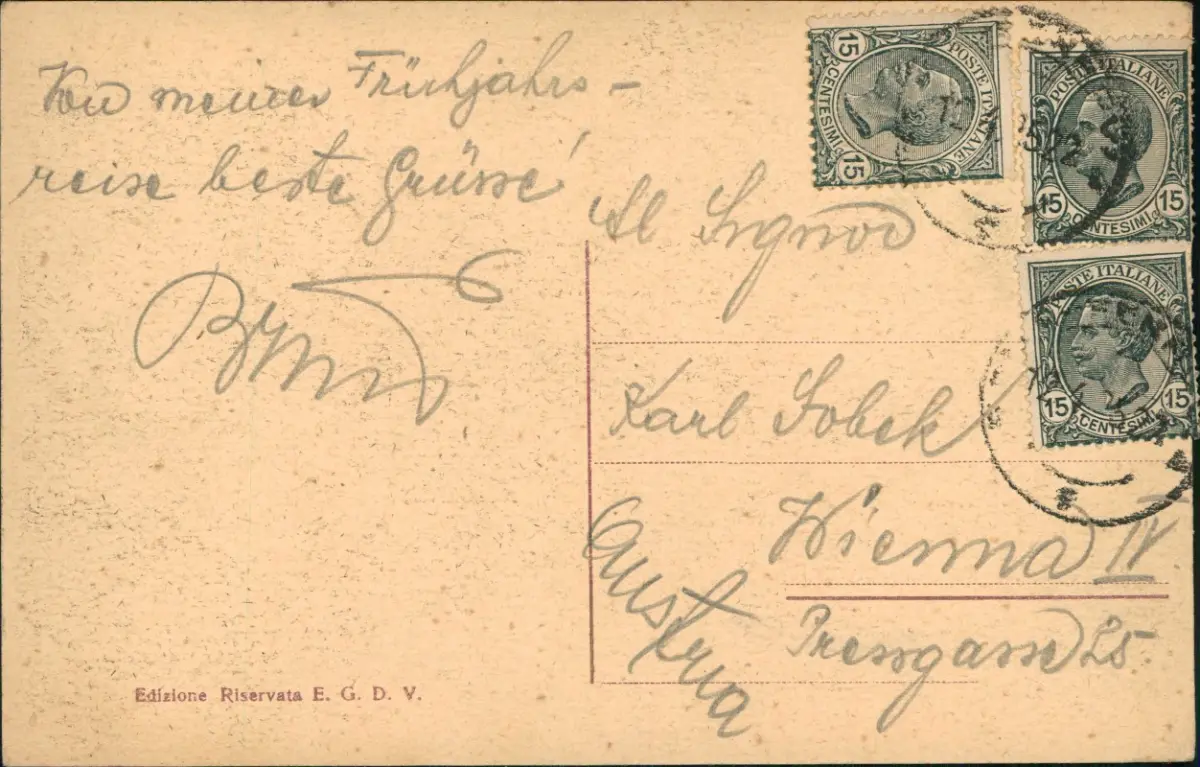 Von meiner Frühjahrs-
reise beste Grüsse
Al Signor
Karl Sobek
Wienna IV
Pressgasse 25.
Austria
Edizione Riservata E. G. D. V.
POSTE ITALIANE
15 CENTESIMI 15
POSTE ITALIANE
15 CENTESIMI 15
POSTE ITALIANE
15 CENTESIMI 15